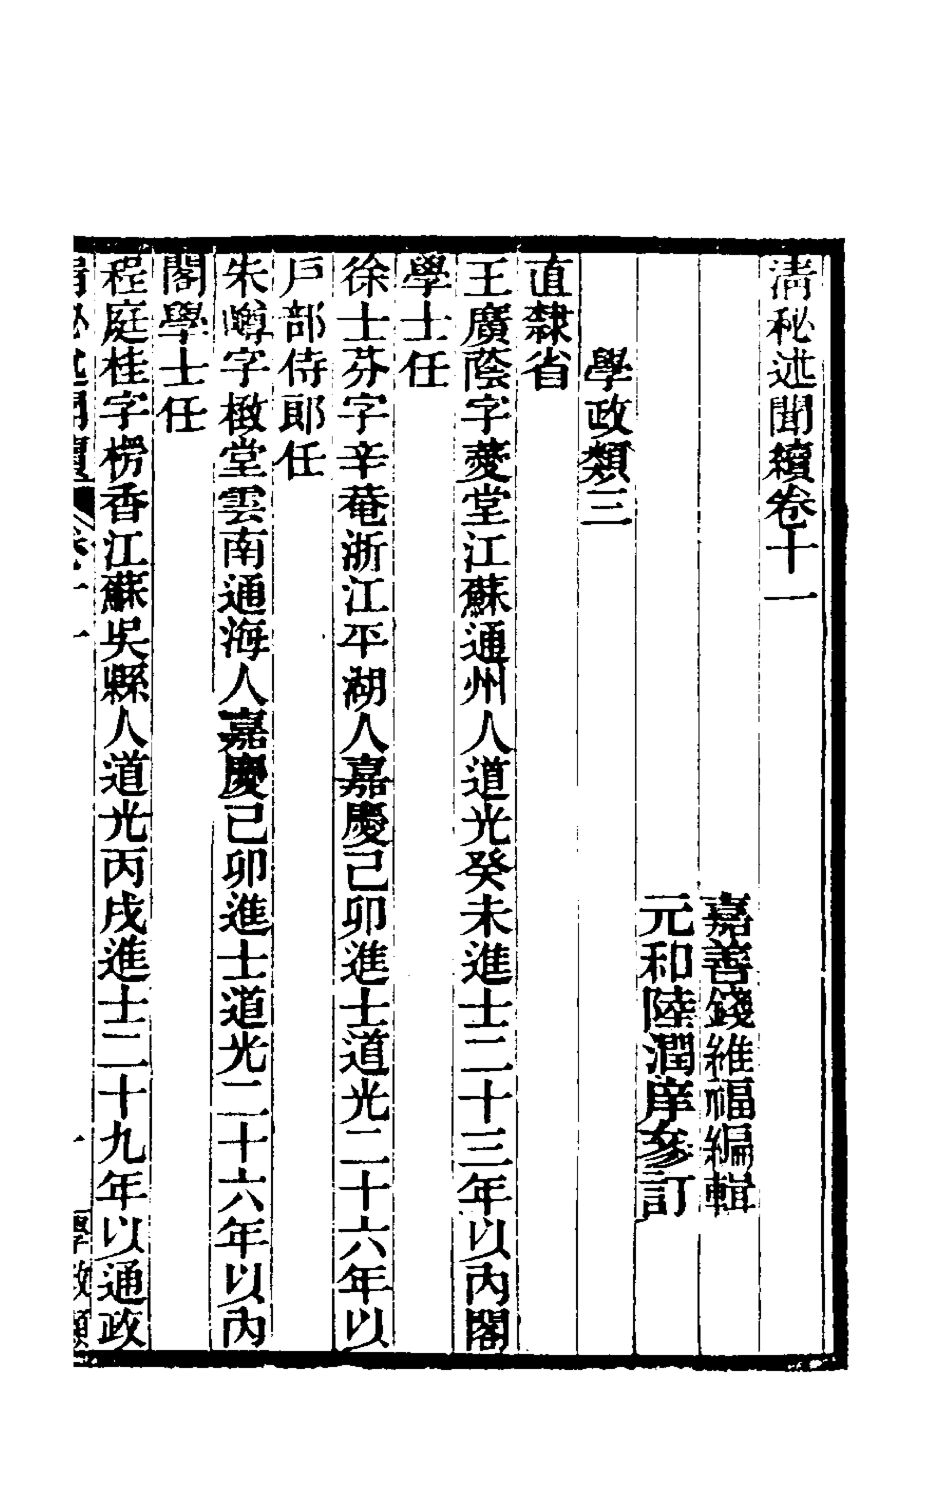 清秘述聞續卷十一
嘉善錢維福編輯
元和陸潤庠參訂
學政類三
直隸省
王廣蔭字薆堂江蘇通州人道光癸未進士二十三年以內閣
學士任
徐士芬字辛菴浙江平湖人嘉慶己卯進士道光二十六年以
戶部侍郎任
朱嶟字橄堂雲南通海人嘉慶己卯進士道光二十六年以內
閣學士任
程庭桂字楞香江蘇吳縣人道光丙戌進士二十九年以通政